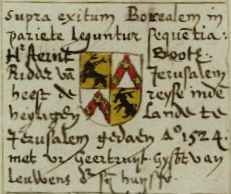 supra exitum Borealem in
pariete leguntur sequentia:
Hr Steint Boote
Ridder vā Jerusalem
heeft de reyse inde
heyligen Lande te
Jerusalem gedaen Ao 1524.
met vr Geertruyt Gysbr van
Leuwens sy huysvr